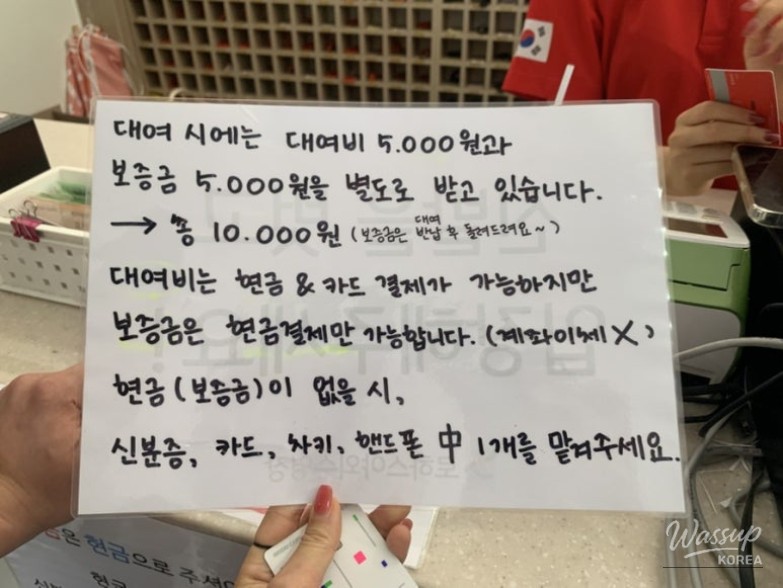 대여 시에는 대여비 5.000원과
보증금 5.000원을 별도로 받고 있습니다.
→ 총 10.000원 (보증금은 대여 반납 후 돌려드려요~)
대여비는 현금 & 카드 결제가 가능하지만
보증금은 현금결제만 가능합니다. (계좌이체 X)
현금 (보증금)이 없을 시,
신분증, 카드, 차키, 핸드폰 中 1개를 맡겨주세요.
은 현금으로 주셔야
현금
Wassup
KOREA